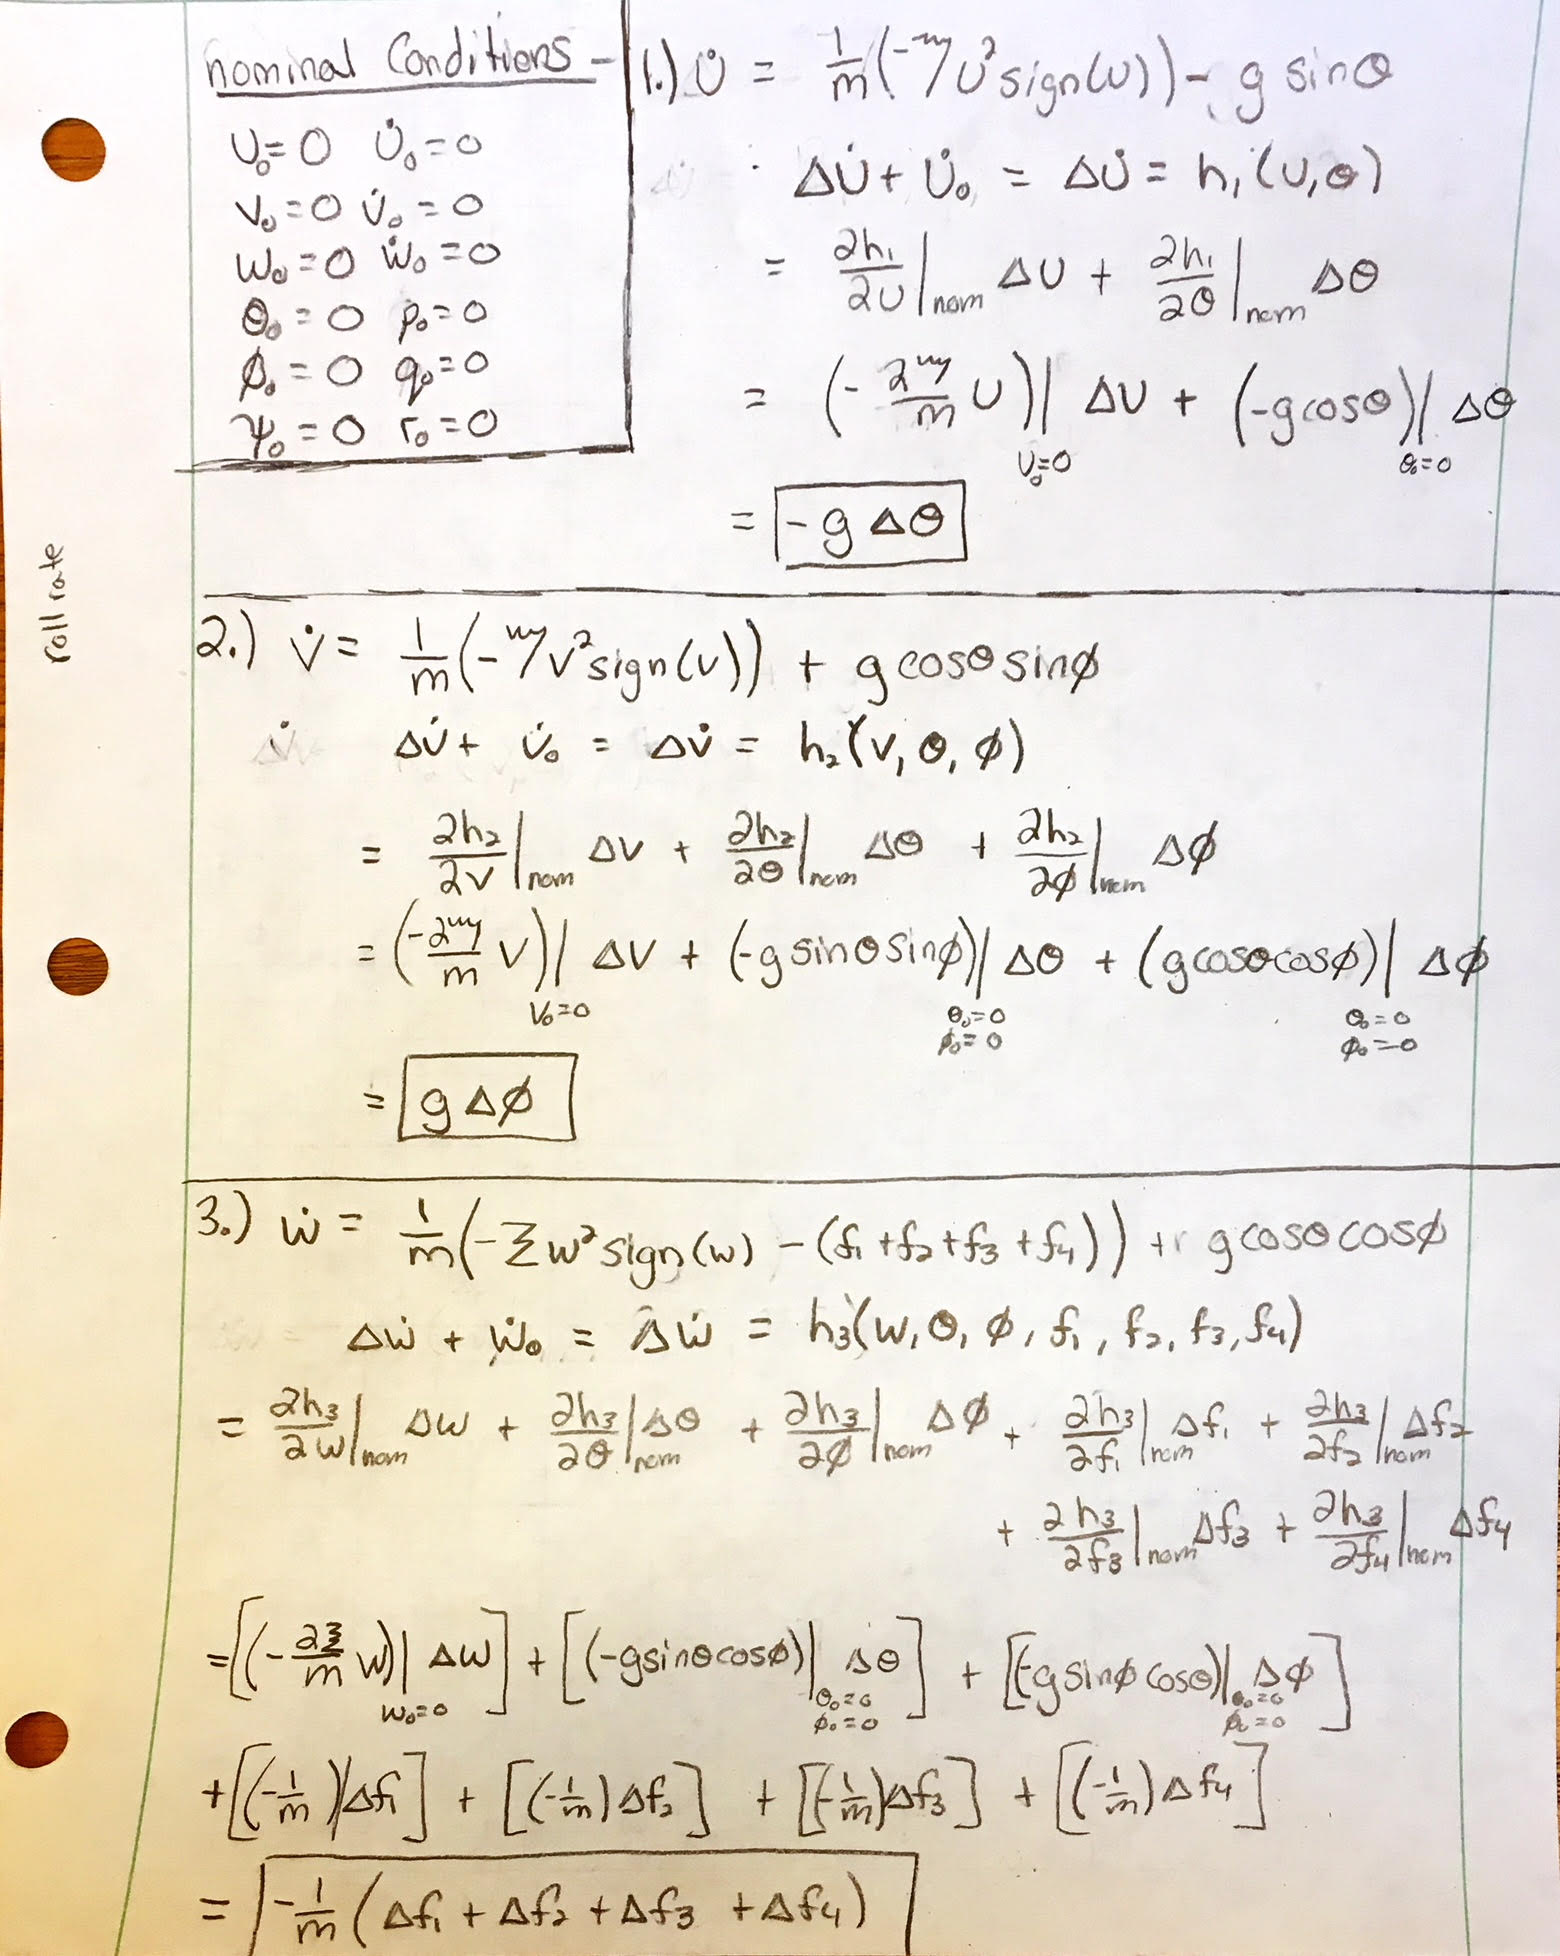 nominal Conditions -
U₀=0 U̇₀=0
V₀=0 V̇₀=0
W₀=0 Ẇ₀=0
θ₀=0 p₀=0
ϕ₀=0 q₀=0
ψ₀=0 r₀=0
1.) U̇ = 1/m(-η U²sign(U)) - g sinθ
ΔU̇ + U̇₀ = ΔU̇ = h₁(U,θ)
= ∂h₁/∂U|nom ΔU + ∂h₁/∂θ|nom Δθ
= (-2η/m U)|U₀=0 ΔU + (-gcosθ)|θ₀=0 Δθ
= -g Δθ
roll rate
2.) V̇ = 1/m(-η V²sign(V)) + g cosθ sinϕ
ΔV̇ + V̇₀ = ΔV̇ = h₂(V, θ, ϕ)
= ∂h₂/∂V|nom ΔV + ∂h₂/∂θ|nom Δθ + ∂h₂/∂ϕ|nom Δϕ
= (-2η/m V)|V₀=0 ΔV + (-g sinθ sinϕ)|θ₀=0 ϕ₀=0 Δθ + (gcosθcosϕ)|θ₀=0 ϕ₀=0 Δϕ
= g Δϕ
3.) Ẇ = 1/m(-ΣW²sign(W) - (f₁+f₂+f₃+f₄)) + g cosθ cosϕ
ΔẆ + Ẇ₀ = ΔẆ = h₃(W, θ, ϕ, f₁, f₂, f₃, f₄)
= ∂h₃/∂W|nom ΔW + ∂h₃/∂θ|nom Δθ + ∂h₃/∂ϕ|nom Δϕ + ∂h₃/∂f₁|nom Δf₁ + ∂h₃/∂f₂|nom Δf₂
+ ∂h₃/∂f₃|nom Δf₃ + ∂h₃/∂f₄|nom Δf₄
=[(-2Σ/m W)|W₀=0 ΔW] + [(-gsinθcosϕ)|θ₀=0 ϕ₀=0 Δθ] + [(-gsinϕ cosθ)|θ₀=0 ϕ₀=0 Δϕ]
+[(-1/m)Δf₁] + [(-1/m)Δf₂] + [(-1/m)Δf₃] + [(-1/m)Δf₄]
= -1/m (Δf₁ + Δf₂ + Δf₃ + Δf₄)